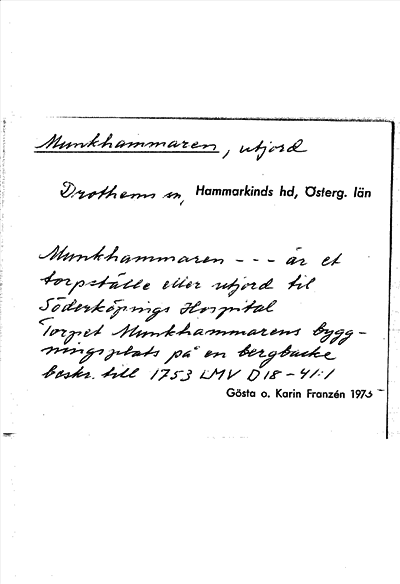 Munkhammaren, utjord
Drothems sn, Hammarkinds hd, Österg. län
Munkhammaren --- är et
torpställe eller utjord til
Söderköpings Hospital
Torpet Munkhammarens bygg-
ningsplats på en bergbacke
beskr. till 1753 LMV D18-41:1
Gösta o. Karin Franzén 1973